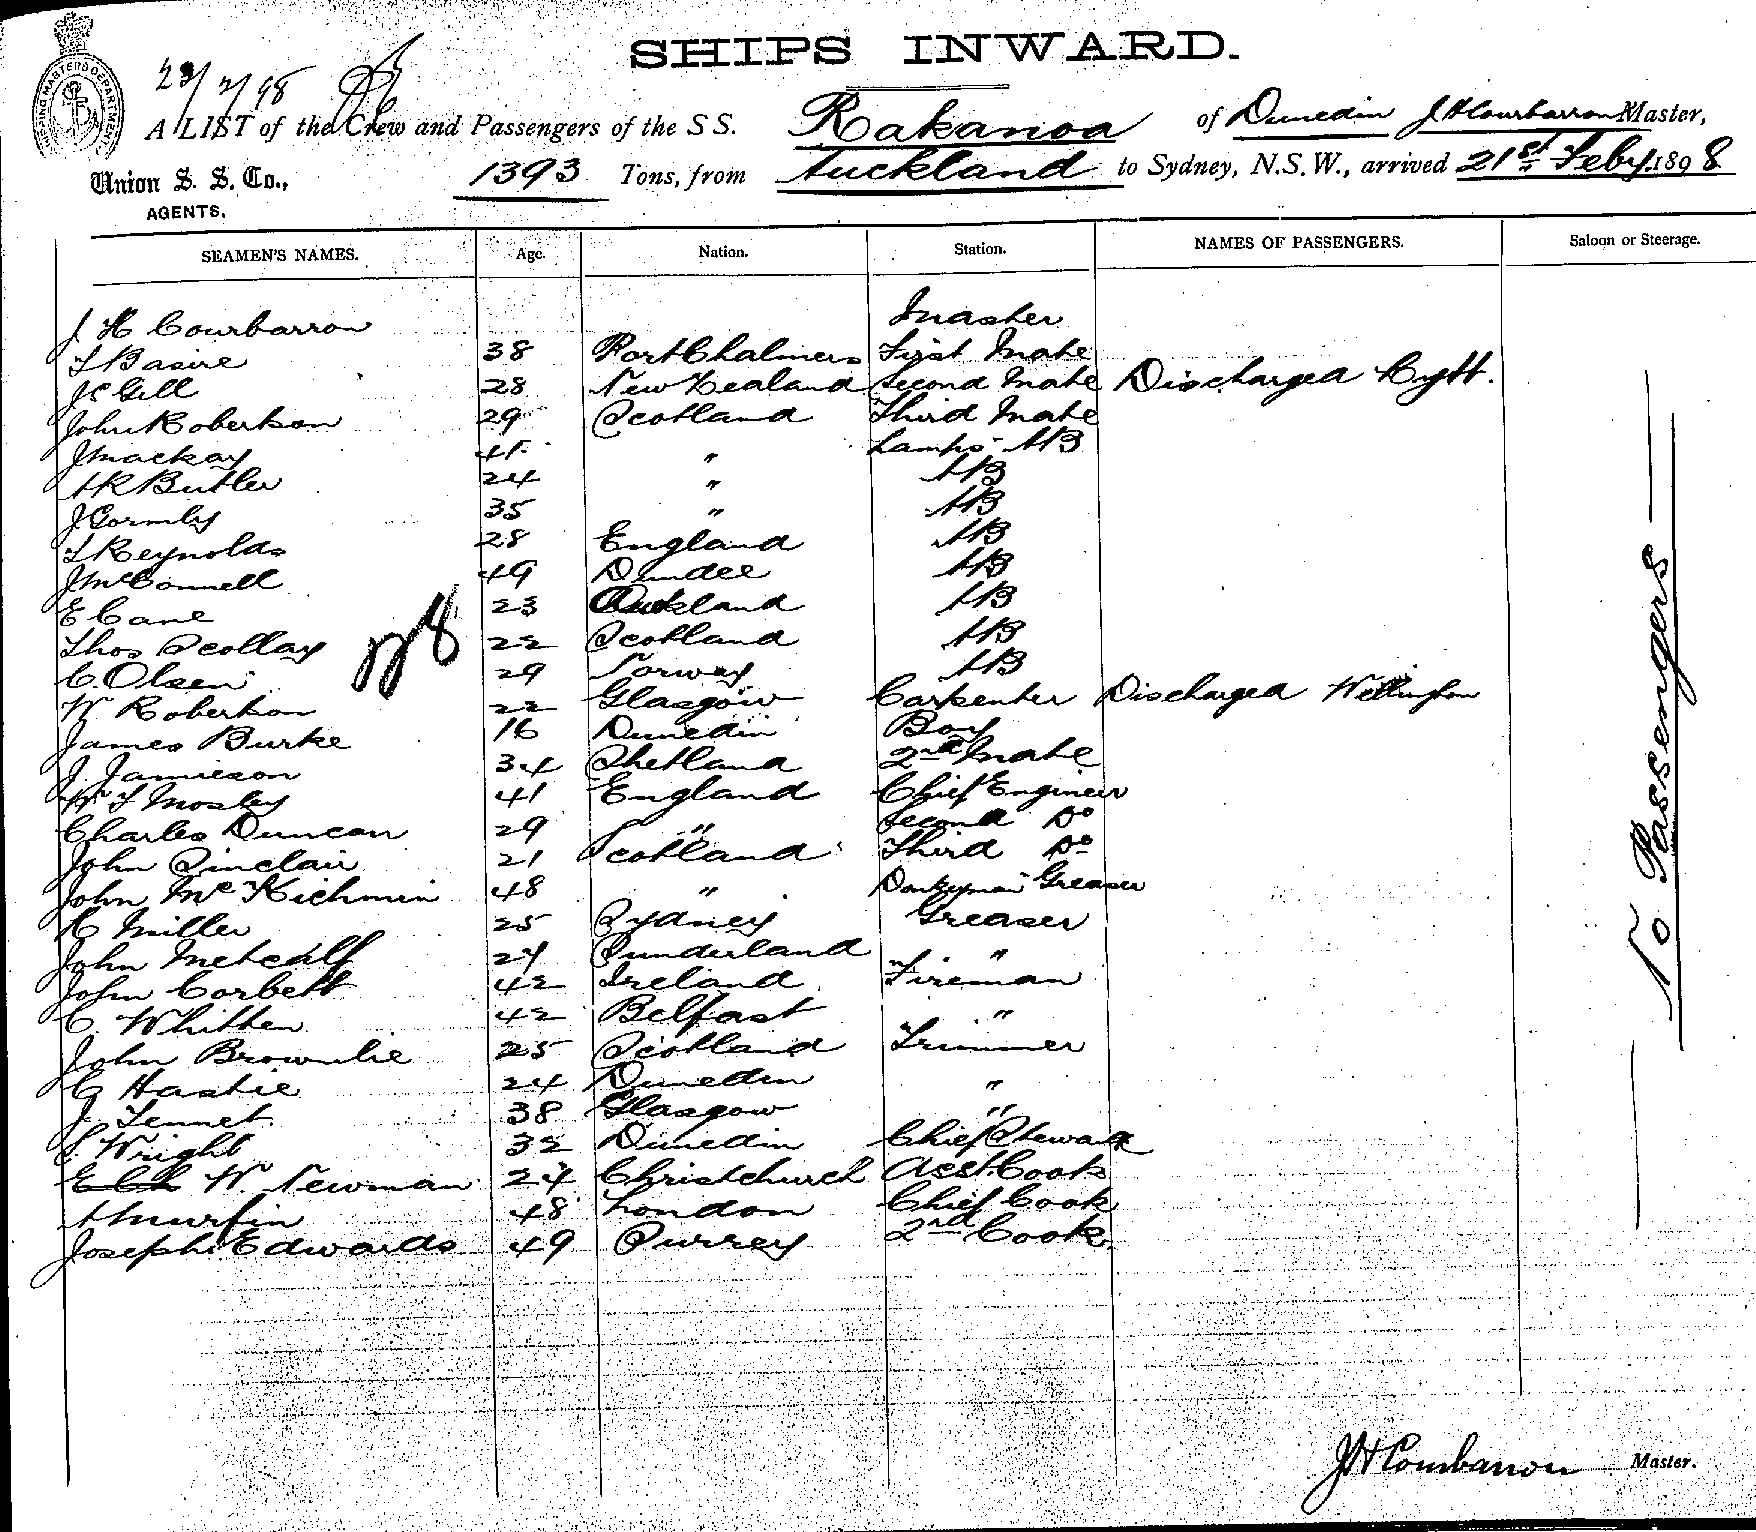 SHIPS INWARD.
23/2/98
A LIST of the Crew and Passengers of the S S. Rakanoa of Dunedin J H Courbarron Master,
Union S. S. Co., 1393 Tons, from Auckland to Sydney, N.S.W., arrived 21st Feby. 1898
AGENTS.
SEAMEN'S NAMES. Age. Nation. Station. NAMES OF PASSENGERS. Saloon or Steerage.
J H Courbarron Master
T Basire 38 Port Chalmers First Mate
J C Gill 28 New Zealand Second Mate Discharged Lytt.
John Robertson 29 Scotland Third Mate
J Mackay 41 " Lamps AB
A R Butler 24 " AB
J Gormly 35 " AB
T Reynolds 28 England AB
J McConnell 49 Dundee AB
E Cane 23 Auckland AB
Thos Scollay 22 Scotland AB
C. Olsen 29 Norway AB
W Robertson 22 Glasgow Carpenter Discharged Wellington
James Burke 16 Dunedin Boy
J. Jamieson 34 Shetland 2nd Mate
W T Mosley 41 England Chief Engineer
Charles Duncan 29 " Second Do
John Sinclair 21 Scotland Third Do
John McKichmin 48 " Donkeyman Greaser
H Miller 25 Sydney Greaser
John Metcalf 24 Sunderland "
John Corbett 42 Ireland Fireman
C. Whitten 42 Belfast "
John Brownlie 25 Scotland Trimmer
G Hastie 24 Dunedin "
J. Tennet 38 Glasgow "
S. Wright 32 Dunedin Chief Steward
W. Newman 24 Christchurch Asst. Cook
A Murfin 48 London Chief Cook
Joseph Edwards 49 Surrey 2nd Cook
No Passengers
J H Courbarron Master.